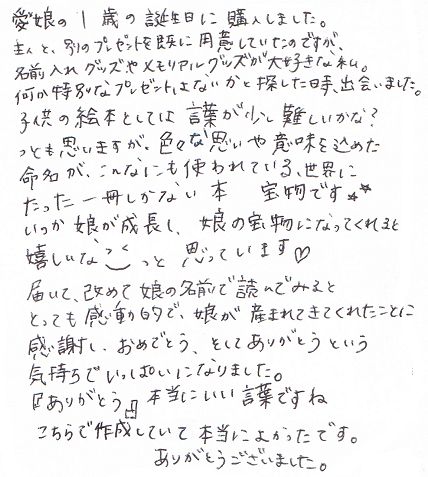 愛娘の1歳の誕生日に購入しました。
主人と、別のプレゼントを既に用意していたのですが、
名前入れグッズやメモリアルグッズが大好きな私。
何か特別なプレゼントはないかと探した時、出会いました。
子供の絵本としては言葉が少し難しいかな?
っとも思いますが、色々な思いや意味を込めた
命名が、こんなにも使われている、世界に
たった一冊しかない本 宝物です☆☆
いつか娘が成長し、娘の宝物になってくれると
嬉しいな っと 思っています♡
届いて、改めて娘の名前で読んでみると
とっても感動的で、娘が産まれてきてくれたことに
感謝し、おめでとう、そしてありがとうという
気持ちでいっぱいになりました。
『ありがとう』本当にいい言葉ですね
こちらで作成していて本当によかったです。
ありがとうございました。